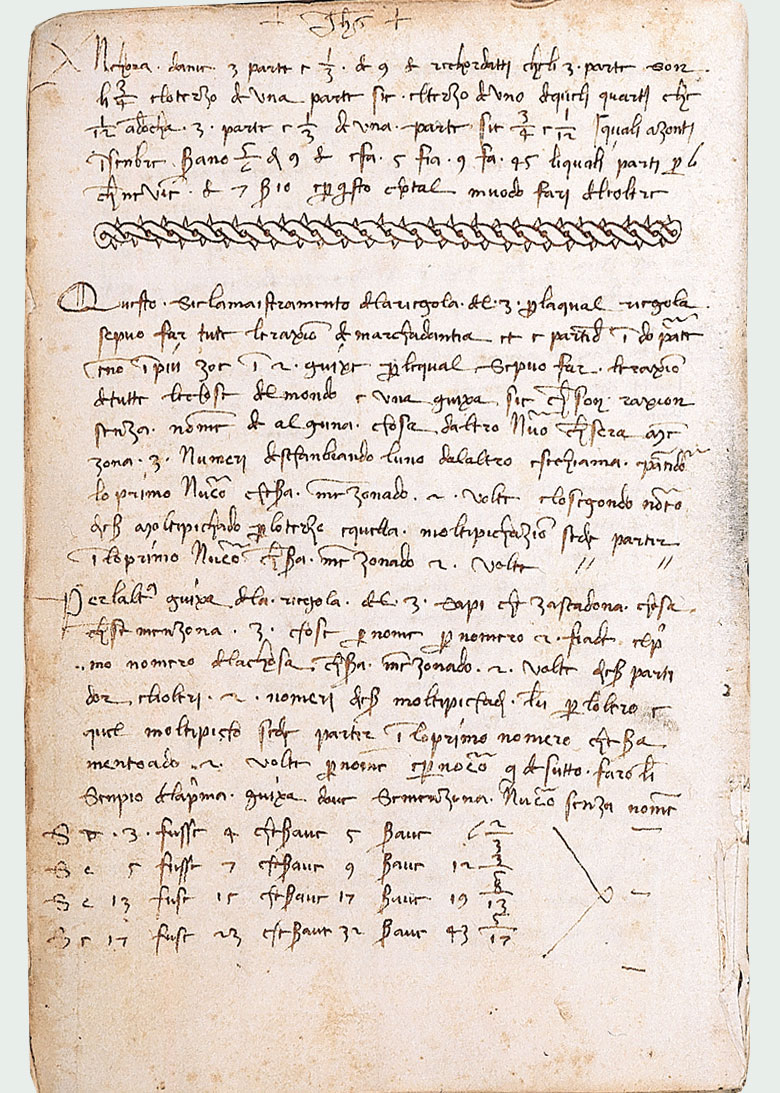 + Jhs +
Anchora . dame 3 parte e 1/3 . de 9 e rechordatti cheli 3 . parte son
li 3/4 eloterzo de una parte sie . elterzo de uno de queli quarti che
1/12 adocha . 3 . parte e 1/3 de una . parte sie 3/4 e 1/12 Iquali azonti
insenbre . sano 5/6 de 9 e efa . 5 fia . 9 fa . 45 liquali parti p 6
che ne vien . e 7 1/2 e p questo chotal muodo farai de le oltre
Questo . sie lamaistramento dela riegola . del . 3 . p laqual riegola
sepuo far tute le raxion de marchadantia et e partida in do parte
eno in piu zoe in 2 . guixe p lequal sepuo far . le raxion
de tutte le chose del mondo e una guixa . sie che son . raxion
senza . nome de alguna . chosa da altro Nuo che sera me
zona . 3 . Numeri desenbrando luno dalaltro esechiama .
lo primo Nuero che sa . menzonado . 2 . volte elosegondo
de esser moltipichado p loterzo e quella . moltipichazion se de partir
in lo primo Nuero che sa . menzonado 2 . volte // //
Per laltra guixa de la . riegola . del . 3 . sapi che zaschadona . chosa
che se menzona . 3 . chose p nome p nomero 2 . fiade el p
mo nomero delachosa che sa . menzonado . 2 . volte de esser parti
dor eli oltri . 2 . nomeri de esser moltipichadi . lun p loltro e
quel moltipicho se de partir in lo primo nomero che sa
mentoado . 2 . volte p nome e p nomero q de sutto . faro li
Senpio dela prima . guixa dove se menzona . Nuero senza nome
Se . 3 . fusse 4 che save 5 save 6 2/3
Se 5 fusse 7 che save 9 save 12 3/5
Se 13 fuse 15 che save 17 save 19 8/13
Se 17 fuse 23 che save 32 save 43 5/17